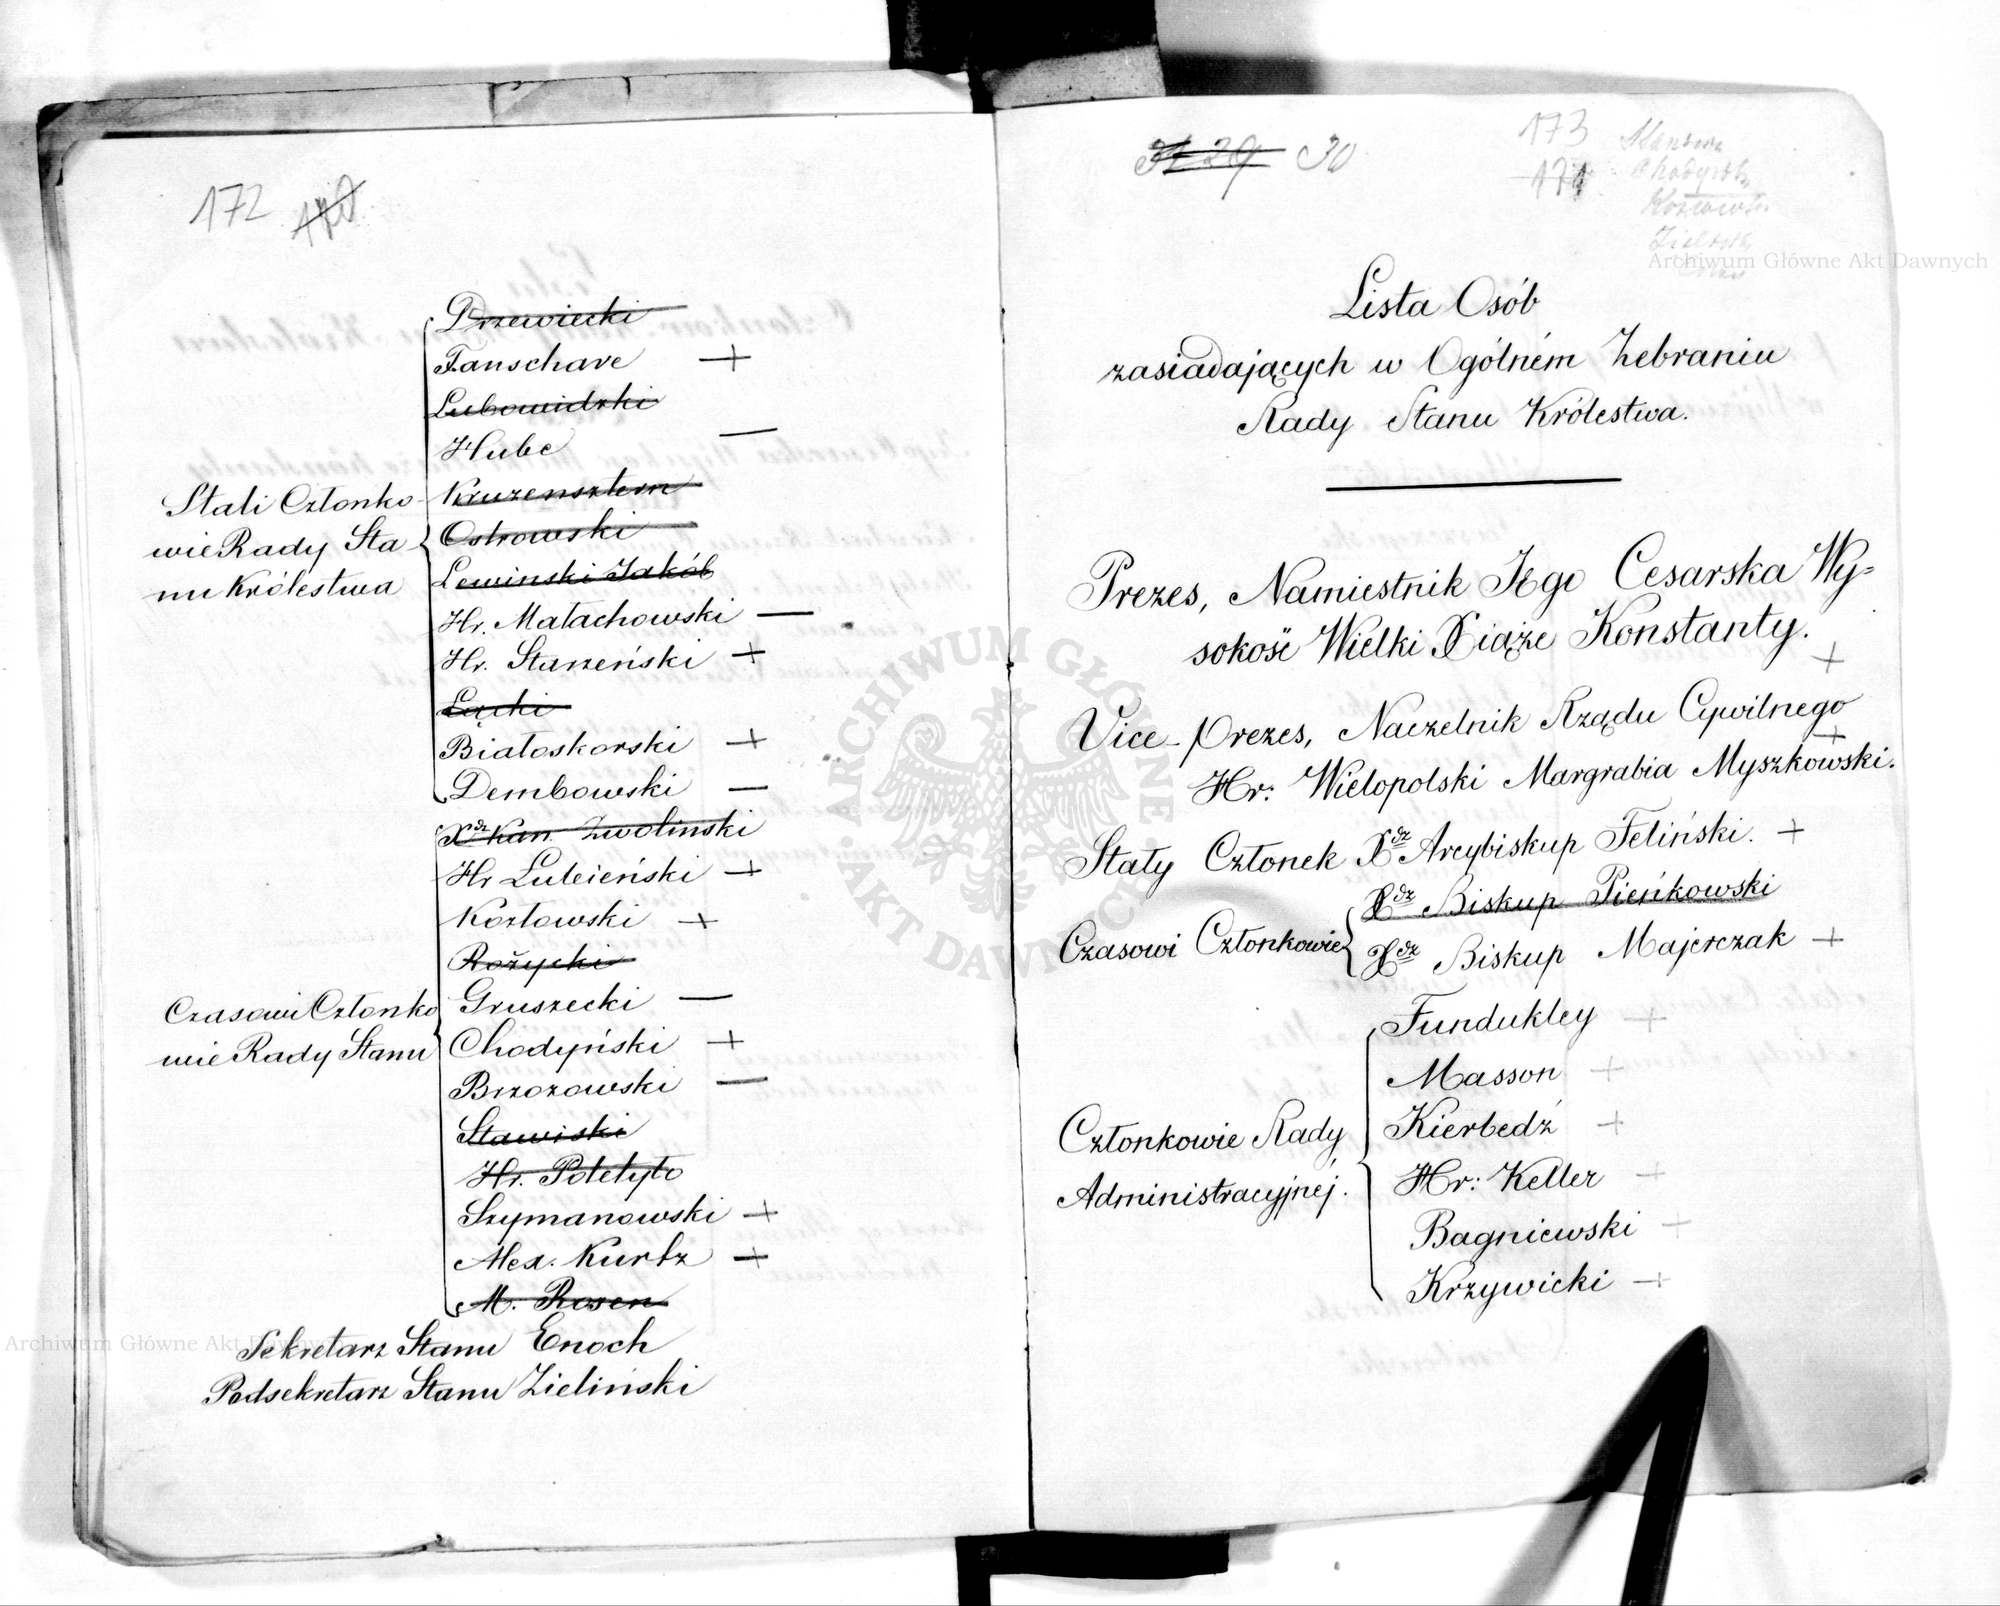 172
Drzewiecki
Fanschave +
Lubowidzki
Hube —
Kruzensztern
Ostrowski
Lewinski Jakób
Hr. Małachowski —
Hr. Starzeński +
Łącki
Białoskorski +
Dembowski —
Stali Członko-
wie Rady Sta
nu Królestwa
Xdz Kan. Zwoliński
Hr Łubieński +
Kozłowski +
Rożycki
Gruszecki —
Chodyński +
Brzozowski —
Stawiski
Hr. Poletyło
Szymanowski +
Alex. Kurtz +
M. Rosen
Czasowi Członko
wie Rady Stanu
Sekretarz Stanu Enoch
Podsekretarz Stanu Zieliński
29 30
173
171
Lista Osób
zasiadających w Ogólném Zebraniu
Rady Stanu Królestwa.
Prezes, Namiestnik Jego Cesarska Wy-
sokość Wielki Xiąże Konstanty. +
Vice-prezes, Naczelnik Rządu Cywilnego
Hr: Wielopolski Margrabia Myszkowski. +
Stały Członek Xdz Arcybiskup Feliński. +
Xdz Biskup Pieńkowski
Czasowi Członkowie Xdz Biskup Majerczak +
Fundukley +
Masson +
Kierbedź +
Członkowie Rady
Administracyjnéj.
Hr: Keller +
Bagniewski +
Krzywicki +
Archiwum Główne Akt Dawnych
Archiwum Główne Akt Dawnych
ARCHIWUM GŁÓWNE AKT DAWNYCH